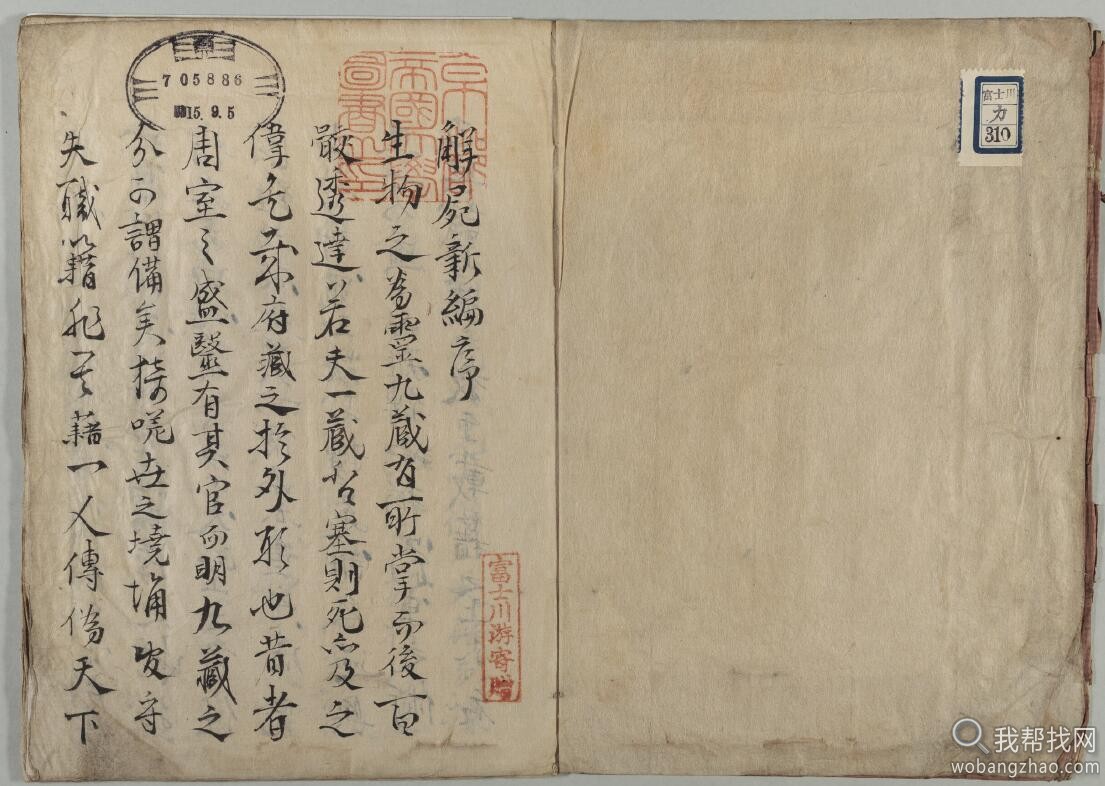 解屍新編序
生物之為靈九蔵有所掌而後百
骸透達
若夫一蔵否塞則死
及之
偉
府蔵之於外形也昔者
周室之盛毉有其官而明九蔵之
分可謂備矣
世之
守
失職
籍
一人傳偽天下
京都帝國大學圖書之印
富士川游寄贈
705886
15.9.5
富士川
カ
310
我帮找网
wobangzhao.com